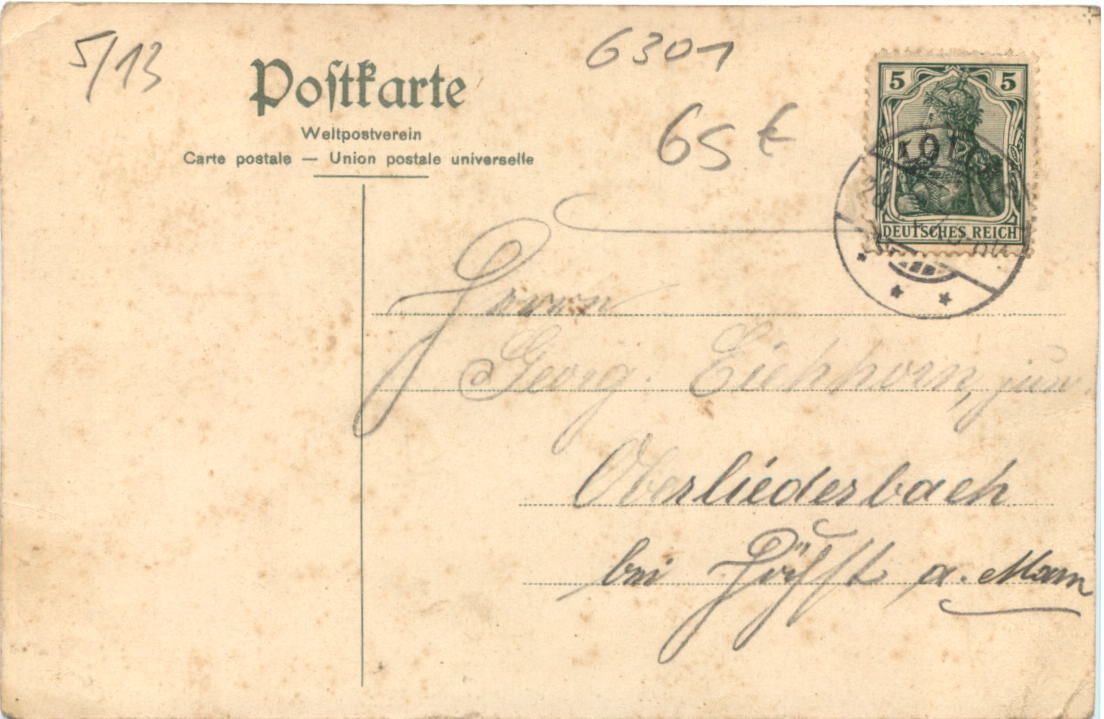 5/13
6301
Postkarte
65 €
Weltpostverein
Carte postale — Union postale universelle
5 5
DEUTSCHES REICH
Herrn
Georg Eichhorn, jun
Oberliederbach
bei Höchst a. Main